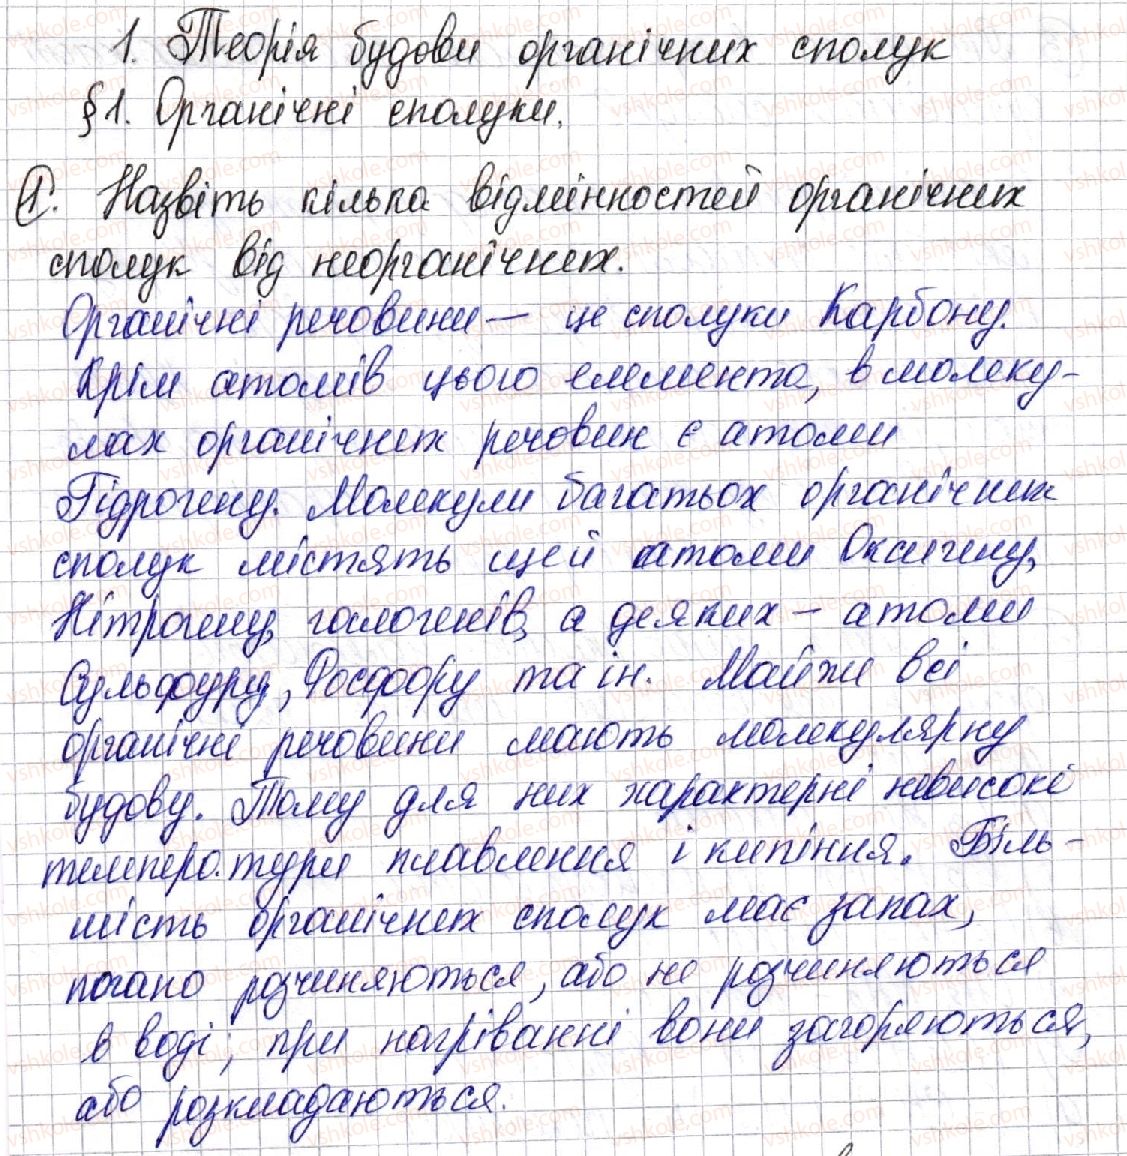 1. Теорія будови органічних сполук
§1. Органічні сполуки.
1. Назвіть кілька відмінностей органічних
сполук від неорганічних.
Органічні речовини — це сполуки Карбону.
Крім атомів цього елемента, в молеку-
лах органічних речовин є атоми
Гідрогену. Молекули багатьох органічних
сполук містять щей атоми Оксигену,
Нітрогену, галогенів, а деяких — атоми
Сульфуру, Фосфору та ін. Майже всі
органічні речовини мають молекулярну
будову. Тому для них характерні невисокі
температури плавлення і кипіння. Біль-
шість органічних сполук має запах,
погано розчиняються, або не розчиняються
в воді; при нагріванні вони загоряються,
або розкладаються.